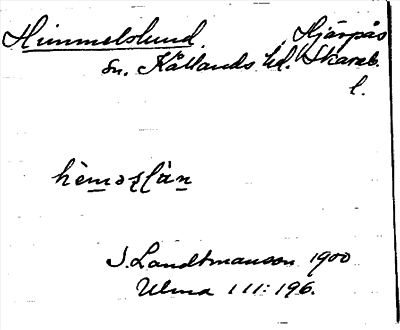 Himmelslund. Hjärpås
sn. Kållands hd. Skarab.
l.
hèməʂḷàn
I. Landtmanson 1900
Ulma 111:196.